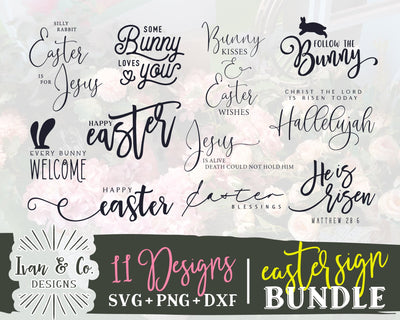 SILLY
RABBIT
Easter
IS FOR
Jesus
SOME
Bunny
LOVES
you
Bunny
KISSES
&
Easter
WISHES
FOLLOW THE
Bunny
CHRIST THE LORD
IS RISEN TODAY
Hallelujah
EVERY BUNNY
WELCOME
HAPPY
easter
Jesus
IS ALIVE
DEATH COULD NOT HOLD HIM
HAPPY
easter
Easter
BLESSINGS
He is
risen
MATTHEW 28:6
Ivan & Co.
DESIGNS
11 Designs
SVG + PNG + DXF
easter sign
BUNDLE